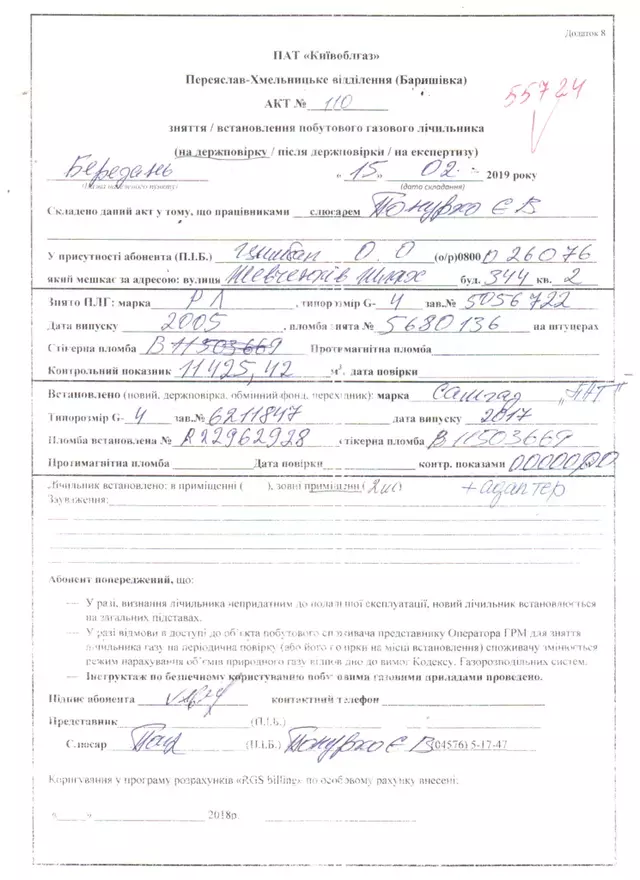 Додаток 8
ПАТ «Київоблгаз»
Переяслав-Хмельницьке відділення (Баришівка)
АКТ № 110
55724
зняття / встановлення побутового газового лічильника
(на держповірку / після держповірки / на експертизу)
Бередань « 15 » 02 2019 року
(назва населеного пункту) (дата складання)
Складено даний акт у тому, що працівниками слюсарем Понурко Є В
У присутності абонента (П.І.Б.) О.О (о/р)0800 026076
який мешкає за адресою: вулиця Шевченків шлях буд. 344 кв. 2
Знято ПЛГ: марка РЛ , типорозмір G- 4 зав.№ 5056722
Дата випуску 2005 , пломба знята № 5680136 на штуцерах
Стікерна пломба В11503669 Протимагнітна пломба
Контрольний показник 11425,42 м³, дата повірки
Встановлено (новий, держповірка, обмінний фонд, перехідник): марка Самгаз „ПАТ"
Типорозмір G- 4 зав.№ 6211847 дата випуску 2017
Пломба встановлена № R22962928 стікерна пломба В11503669
Протимагнітна пломба Дата повірки контр. показами 00000,00
Лічильник встановлено: в приміщенні ( ), зовні приміщенні ( ) + адаптер
Зауваження:
Абонент попереджений, що:
— У разі, визнання лічильника непридатним до подальшої експлуатації, новий лічильник встановлюється
на загальних підставах.
— У разі відмови в доступі до об'єкта побутового споживача представнику Оператора ГРМ для зняття
лічильника газу на періодичну повірку (або його повірки на місці встановлення) споживачу змінюється
режим нарахування об'ємів природного газу відповідно до вимог Кодексу. Газорозподільних систем.
— Інструктаж по безпечному користуванню побутовими газовими приладами проведено.
Підпис абонента контактний телефон
Представник (П.І.Б.)
Слюсар (П.І.Б.) Понурко Є В (04576) 5-17-47
Коригування у програму розрахунків «RGS billing» по особовому рахунку внесені:
« » 2018р.